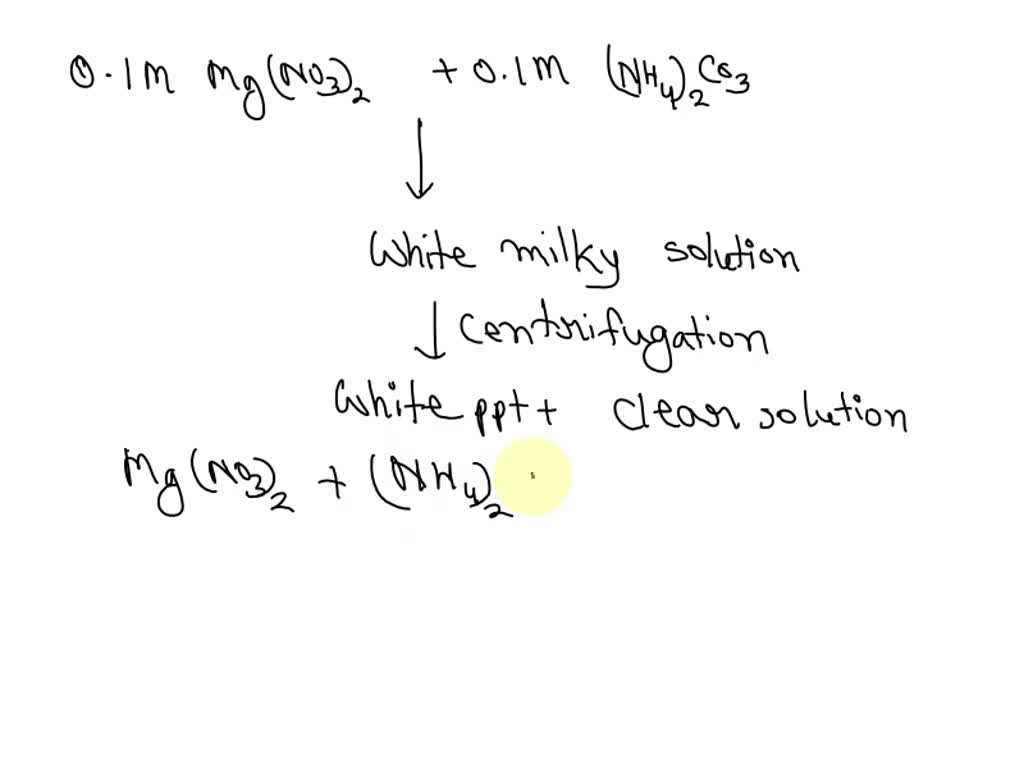 0.1M Mg(NO3)2 + 0.1M (NH4)2CO3
White milky solution
Centrifugation
White ppt + Clear solution
Mg(NO3)2 + (NH4)2